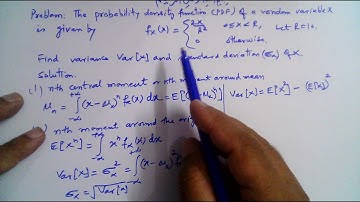 Problem: The probability density function (PDF) of a random variable X
is given by fx(x) = { 2x/R² 0≤x<R, Let R=10.
0 otherwise.
Find variance Var[X] and standard deviation (σx) of X
Solution:
(1) nth central moment or nth moment around mean
μn = ∫ (x-μx)ⁿ fx(x) dx = E[(X-μx)ⁿ] | Var[x] = E[X²] - (E[X])²
) nth moment around the
E[Xⁿ] = ∫ xⁿ fx(x) dx
Var[x] = σx² = ∫ (x-μx)² f
σx = √Var[x]